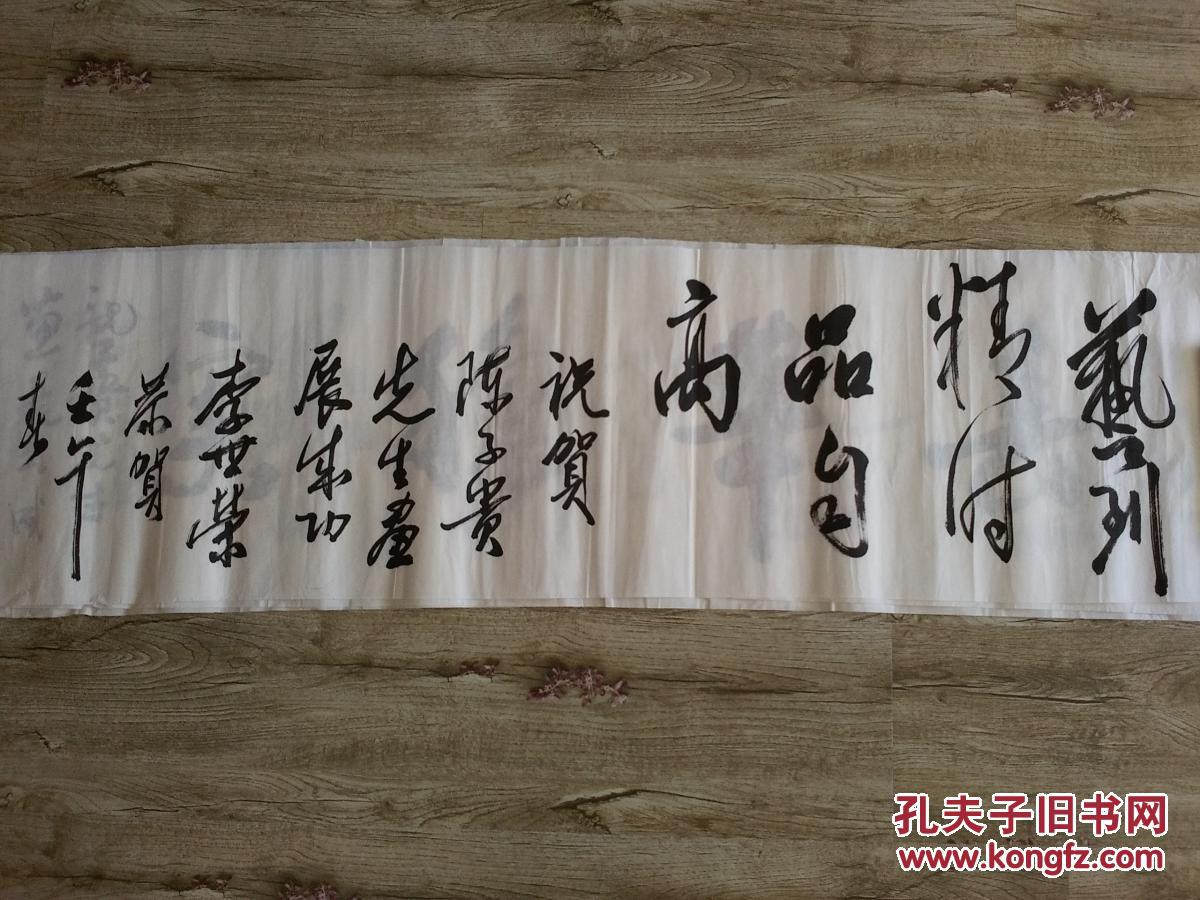 藝到
精时
品自
高
祝賀
陈子貴
先生画
展成功
李世榮
恭賀
壬午
春
孔夫子旧书网
www.kongfz.com